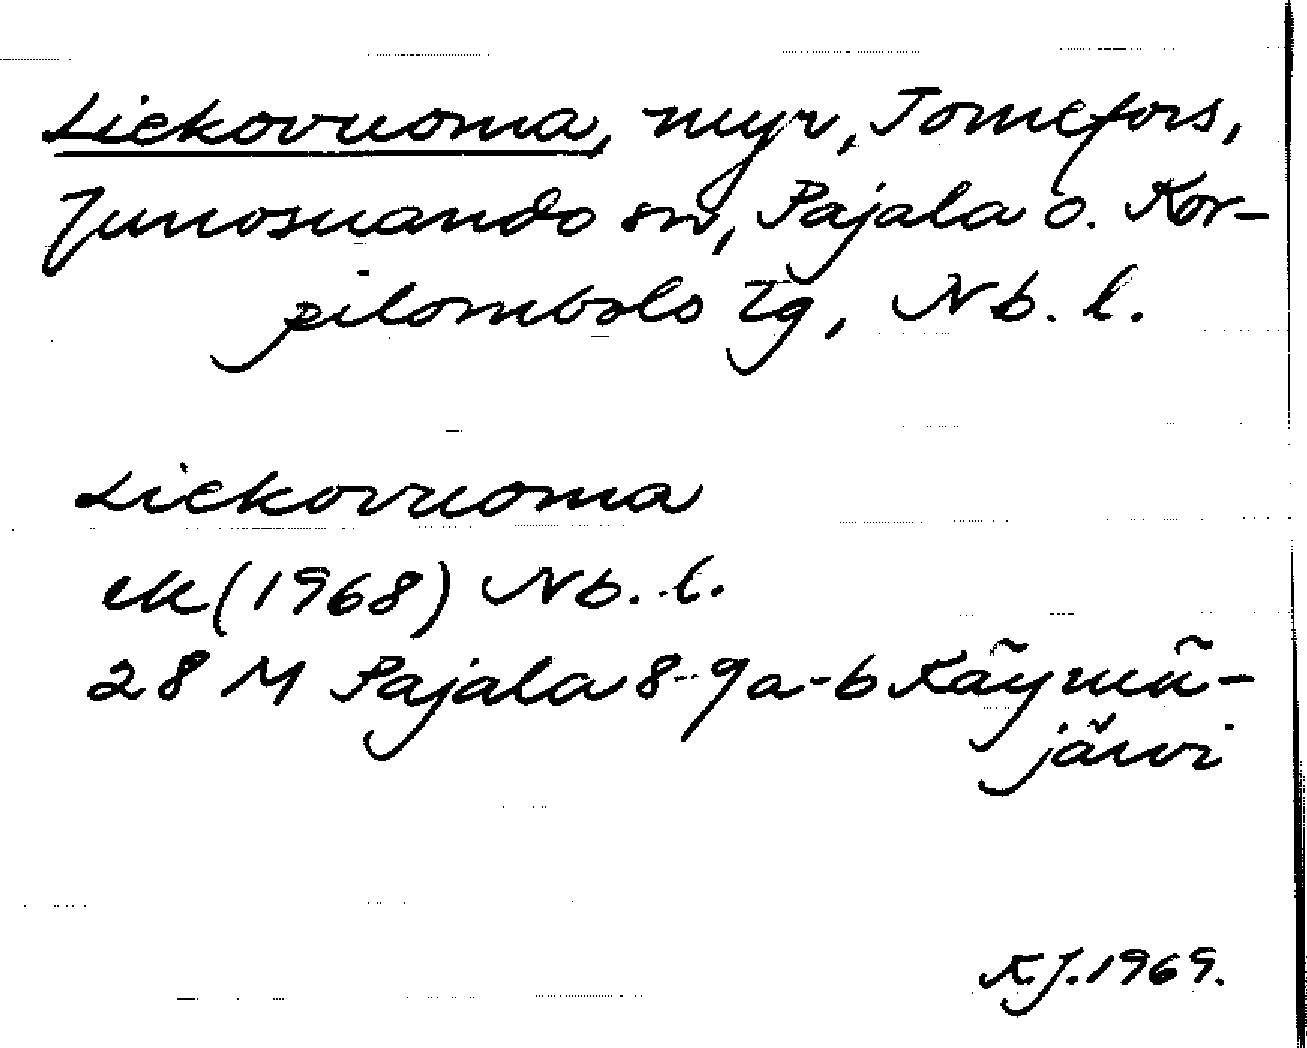 Liekovuoma, myr, Tornefors,
Junosuando sn, Pajala o. Kor-
pilombolo tg, Nb. l.
Liekovuoma
ek (1968) Nb. l.
28 M Pajala 8-9 a-b Käymä-
järvi
K.J. 1969.